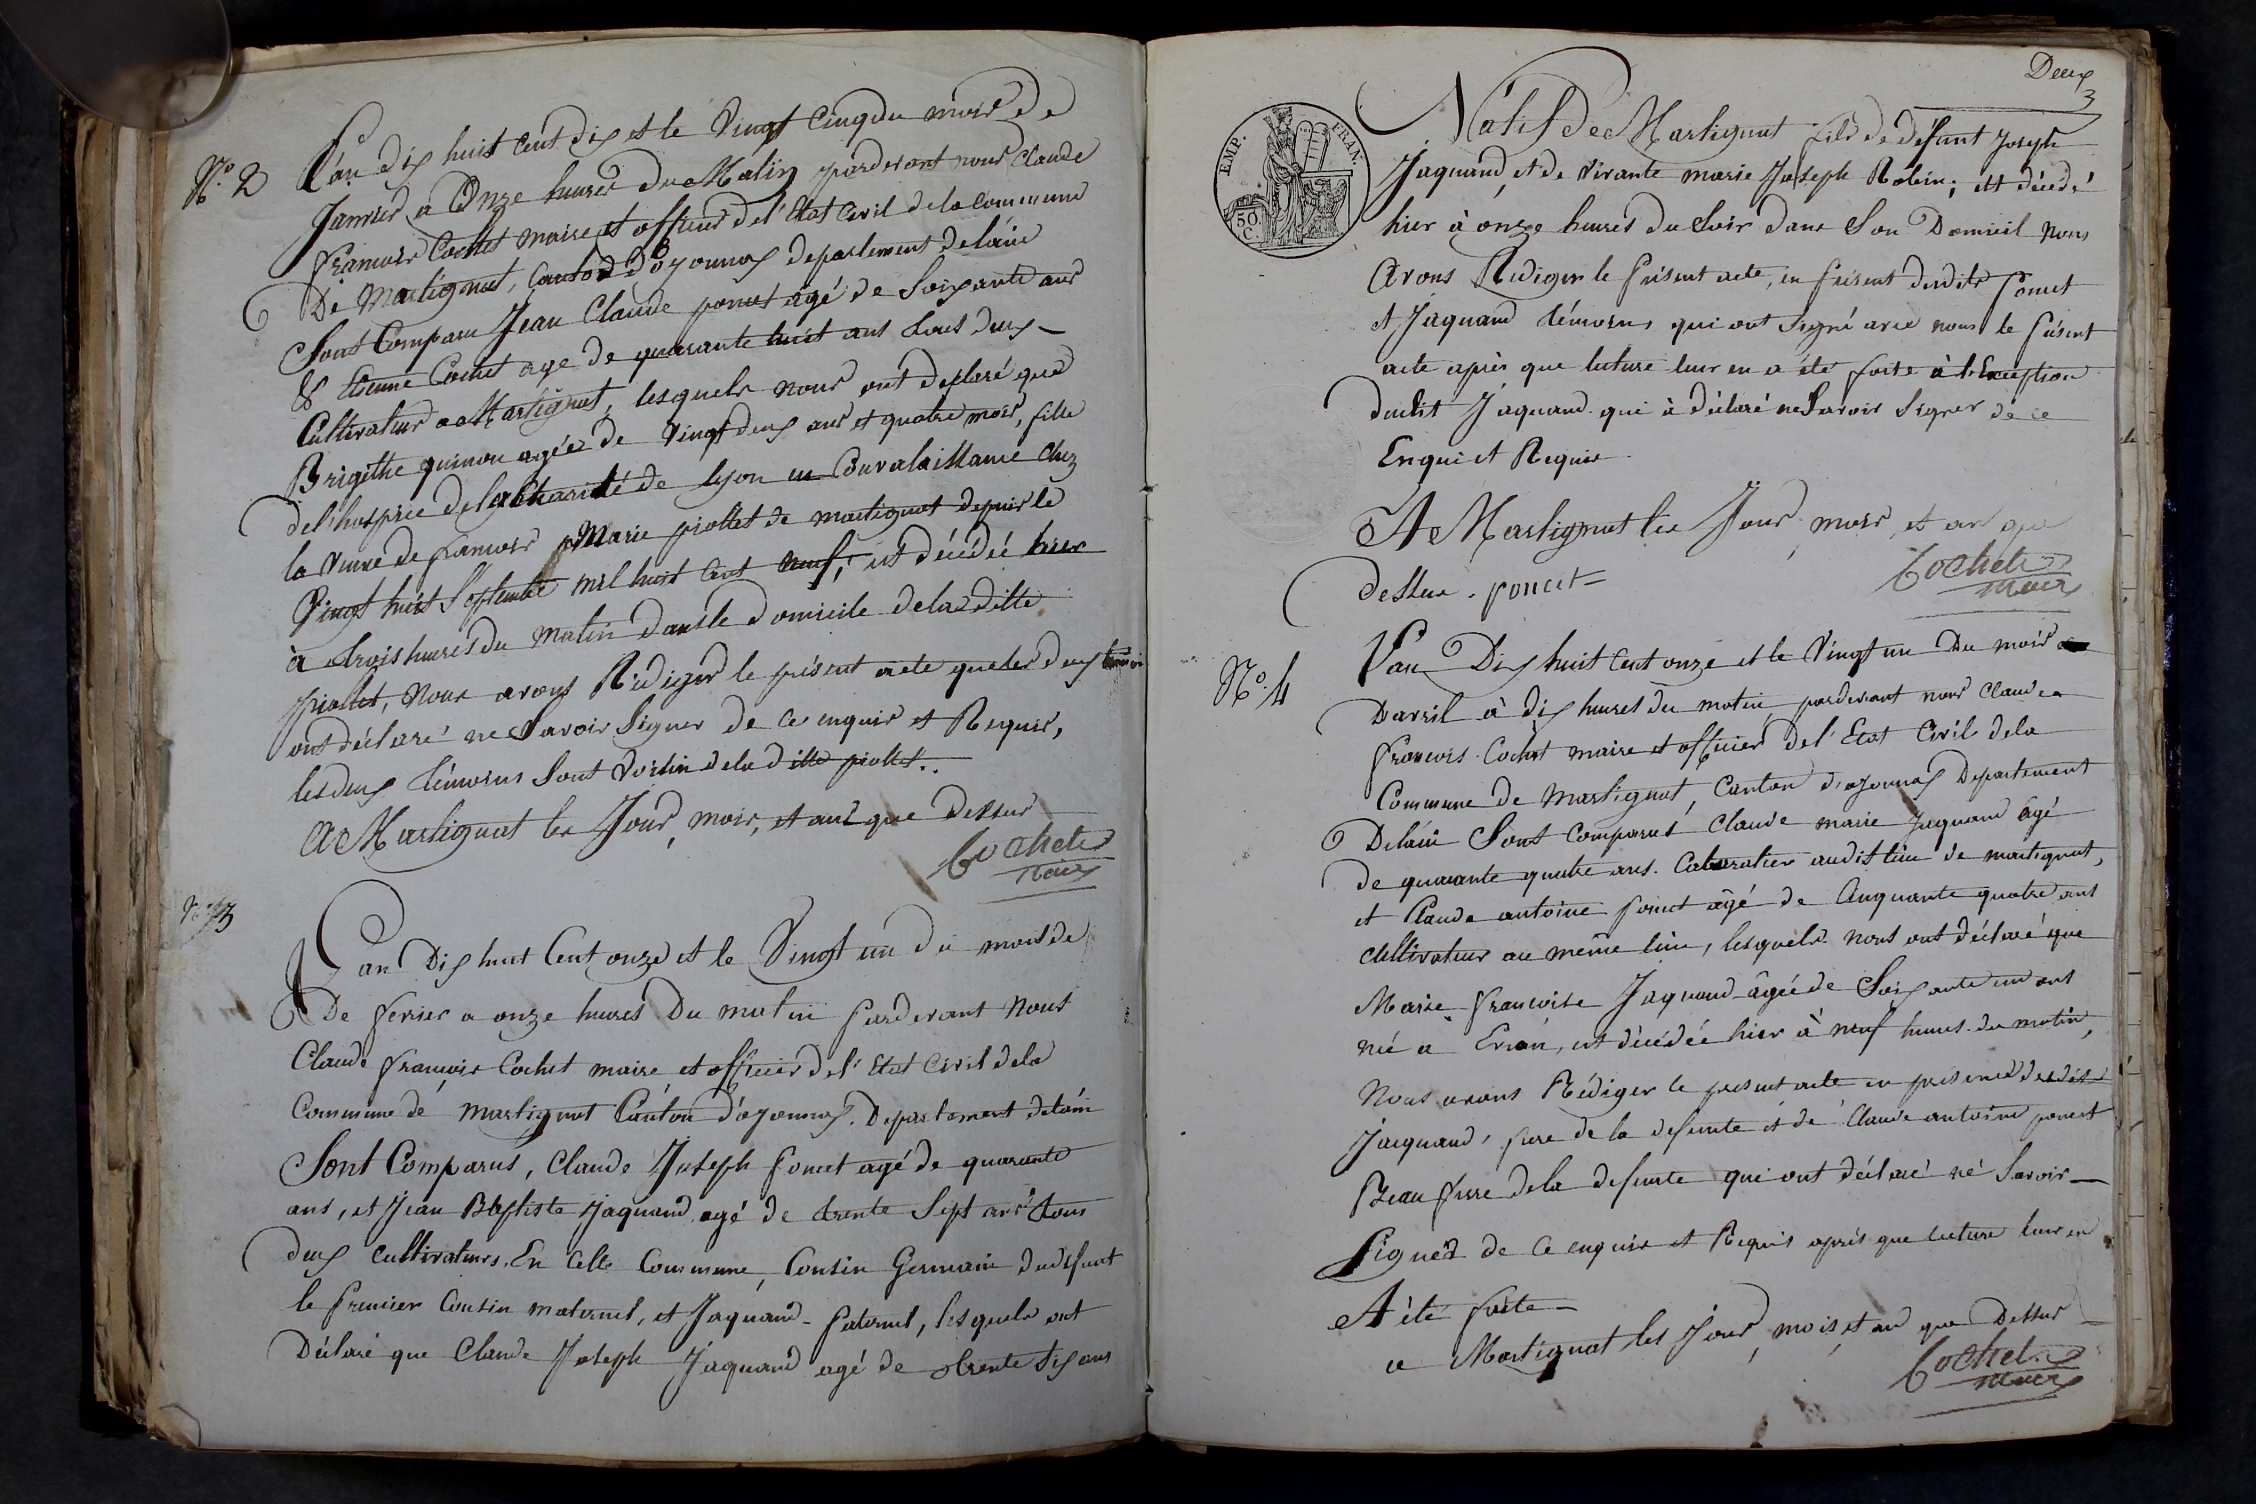 N.o 2
L'an dix huit cent dix et le Vingt Cinq du mois de
Janvier a Onze heures du Matin pardevant nous Claude
françois Cochet maire et officier de l'Etat Civil de la Commune
De Martignat, Canton d'oyonnax departement de lain
Sont Comparu Jean Claude poncet agé de Soixante ans
& Etienne Comet age de quarante huit ans tous deux
Cultivateur a Martignat, lesquels nous ont declaré que
Brigithe quinon agée de Vingt deux ans et quatre mois, fille
de l'hospice de la Charité de lyon en Convalaissance chez
la Veuve de francois Marie piollet de martignat depuis le
Vingt huit Septembre mil huit Cent neuf, est décédée hier
à trois heures du matin dans le domicile de la ditte
piollet, Nous avons Rediger le présent acte que les deux témoin
ont déclaré ne Savoir Signer de ce enquis et Requis,
les deux témoins Sont Voisin de la ditte piollet..
A Martignat les Jour, mois, et an que Dessus
Cochet
Maire
No 3
L'an Dix huit Cent onze et le Vingt un du mois de
De fevrier a onze heures Du matin Pardevant Nous
Claude françois Cochet maire et officier de l'Etat Civil de la
Commune de Martignat Canton d'oyonnax. Departement de lain
Sont Comparus, Claude Joseph Poncet agé de quarante
ans, et Jean Baptiste Jaquand agé de trente Sept ans tous
deux cultivateurs. En cette Commune, Cousin Germain du défunt
le Premier Cousin maternel, et Jaquand-Paternel, lesquels ont
Déclaré que Claude Joseph Jaquand agé de trente Six ans
Deux
3
EMP. FRAN.
50
C.
Natif De Martignat fils de défunt Joseph
Jaquand, et de Vivante marie Joseph Robin; est décedé
hier à onze heures du Soir dans Son Domicil Nous
Avons Rediger le Présent acte, en Présent desdits Poncet
et Jaquand témoins qui ont Signé avec nous le Présent
acte après que lecture leur en a été faite à l'Exception
dudit Jaquand qui à déclaré ne Savoir Signer de ce
Enqui et Requis
A Martignat les Jour, mois, et an que
dessus. poncet
Cochet
Maire
N.o 4
L'an Dix huit Cent onze et le Vingt un Du mois
Davril à dix heures du matin pardevant nous Claude
françois Cochet maire et officier de l'Etat Civil de la
Commune de Martignat, Canton d'oyonnax Departement
Delain Sont Comparus Claude marie Jaquand âgé
de quarante quatre ans. Cabaratier audit lieu de martignat,
et Claude antoine Poncet âgé de Cinquante quatre ans
Cultivateur au même lieu, lesquels nous ont déclaré que
Marie-françoise Jaquand agée de Soixante un ans
né a, est décédée hier à neuf heures du matin,
Nous avons Rédiger le present acte en présence desdits
Jacquand, frere de la defunte et de Claude antoine poncet
Beau frere de la defunte qui ont déclaré né Savoir
Signer de ce enquis et Requis après que lecture leur en
A été faite
a Martignat les Jour, mois, et an que Dessus
Cochet
Maire